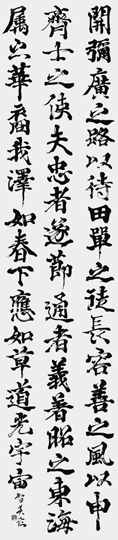 開彌廣之路以待田單之徒長容善之風以申
齊士之使夫忠者遂節通者義著昭之東海
属之華裔我澤如春下應如草道光宇宙